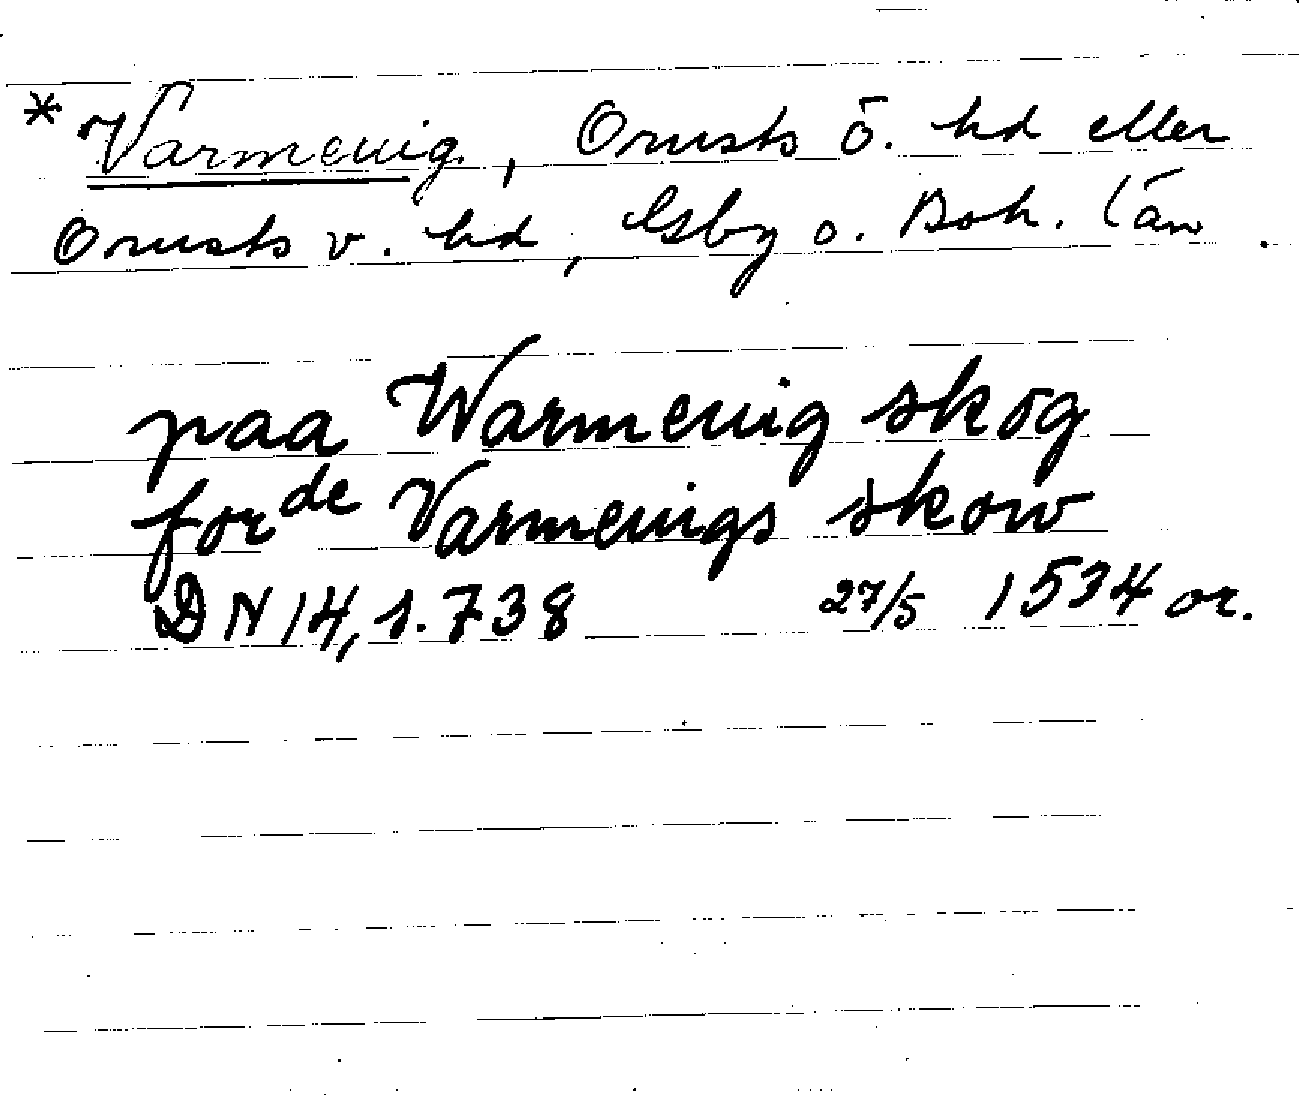 * Varmeuig, Orusts ö. hd eller
Orusts v. hd, Gbg o. Boh. län.
paa Warmeuig skog
for^de Varmeuigs skow
DN 14, s. 738 27/5 1534 or.